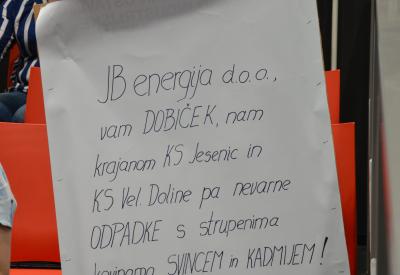 JB energija d.o.o.,
vam DOBIČEK, nam
krajanom KS Jesenic in
KS Vel. Doline pa nevarne
ODPADKE s strupenima
kovinama SVINCEM in KADMIJEM!